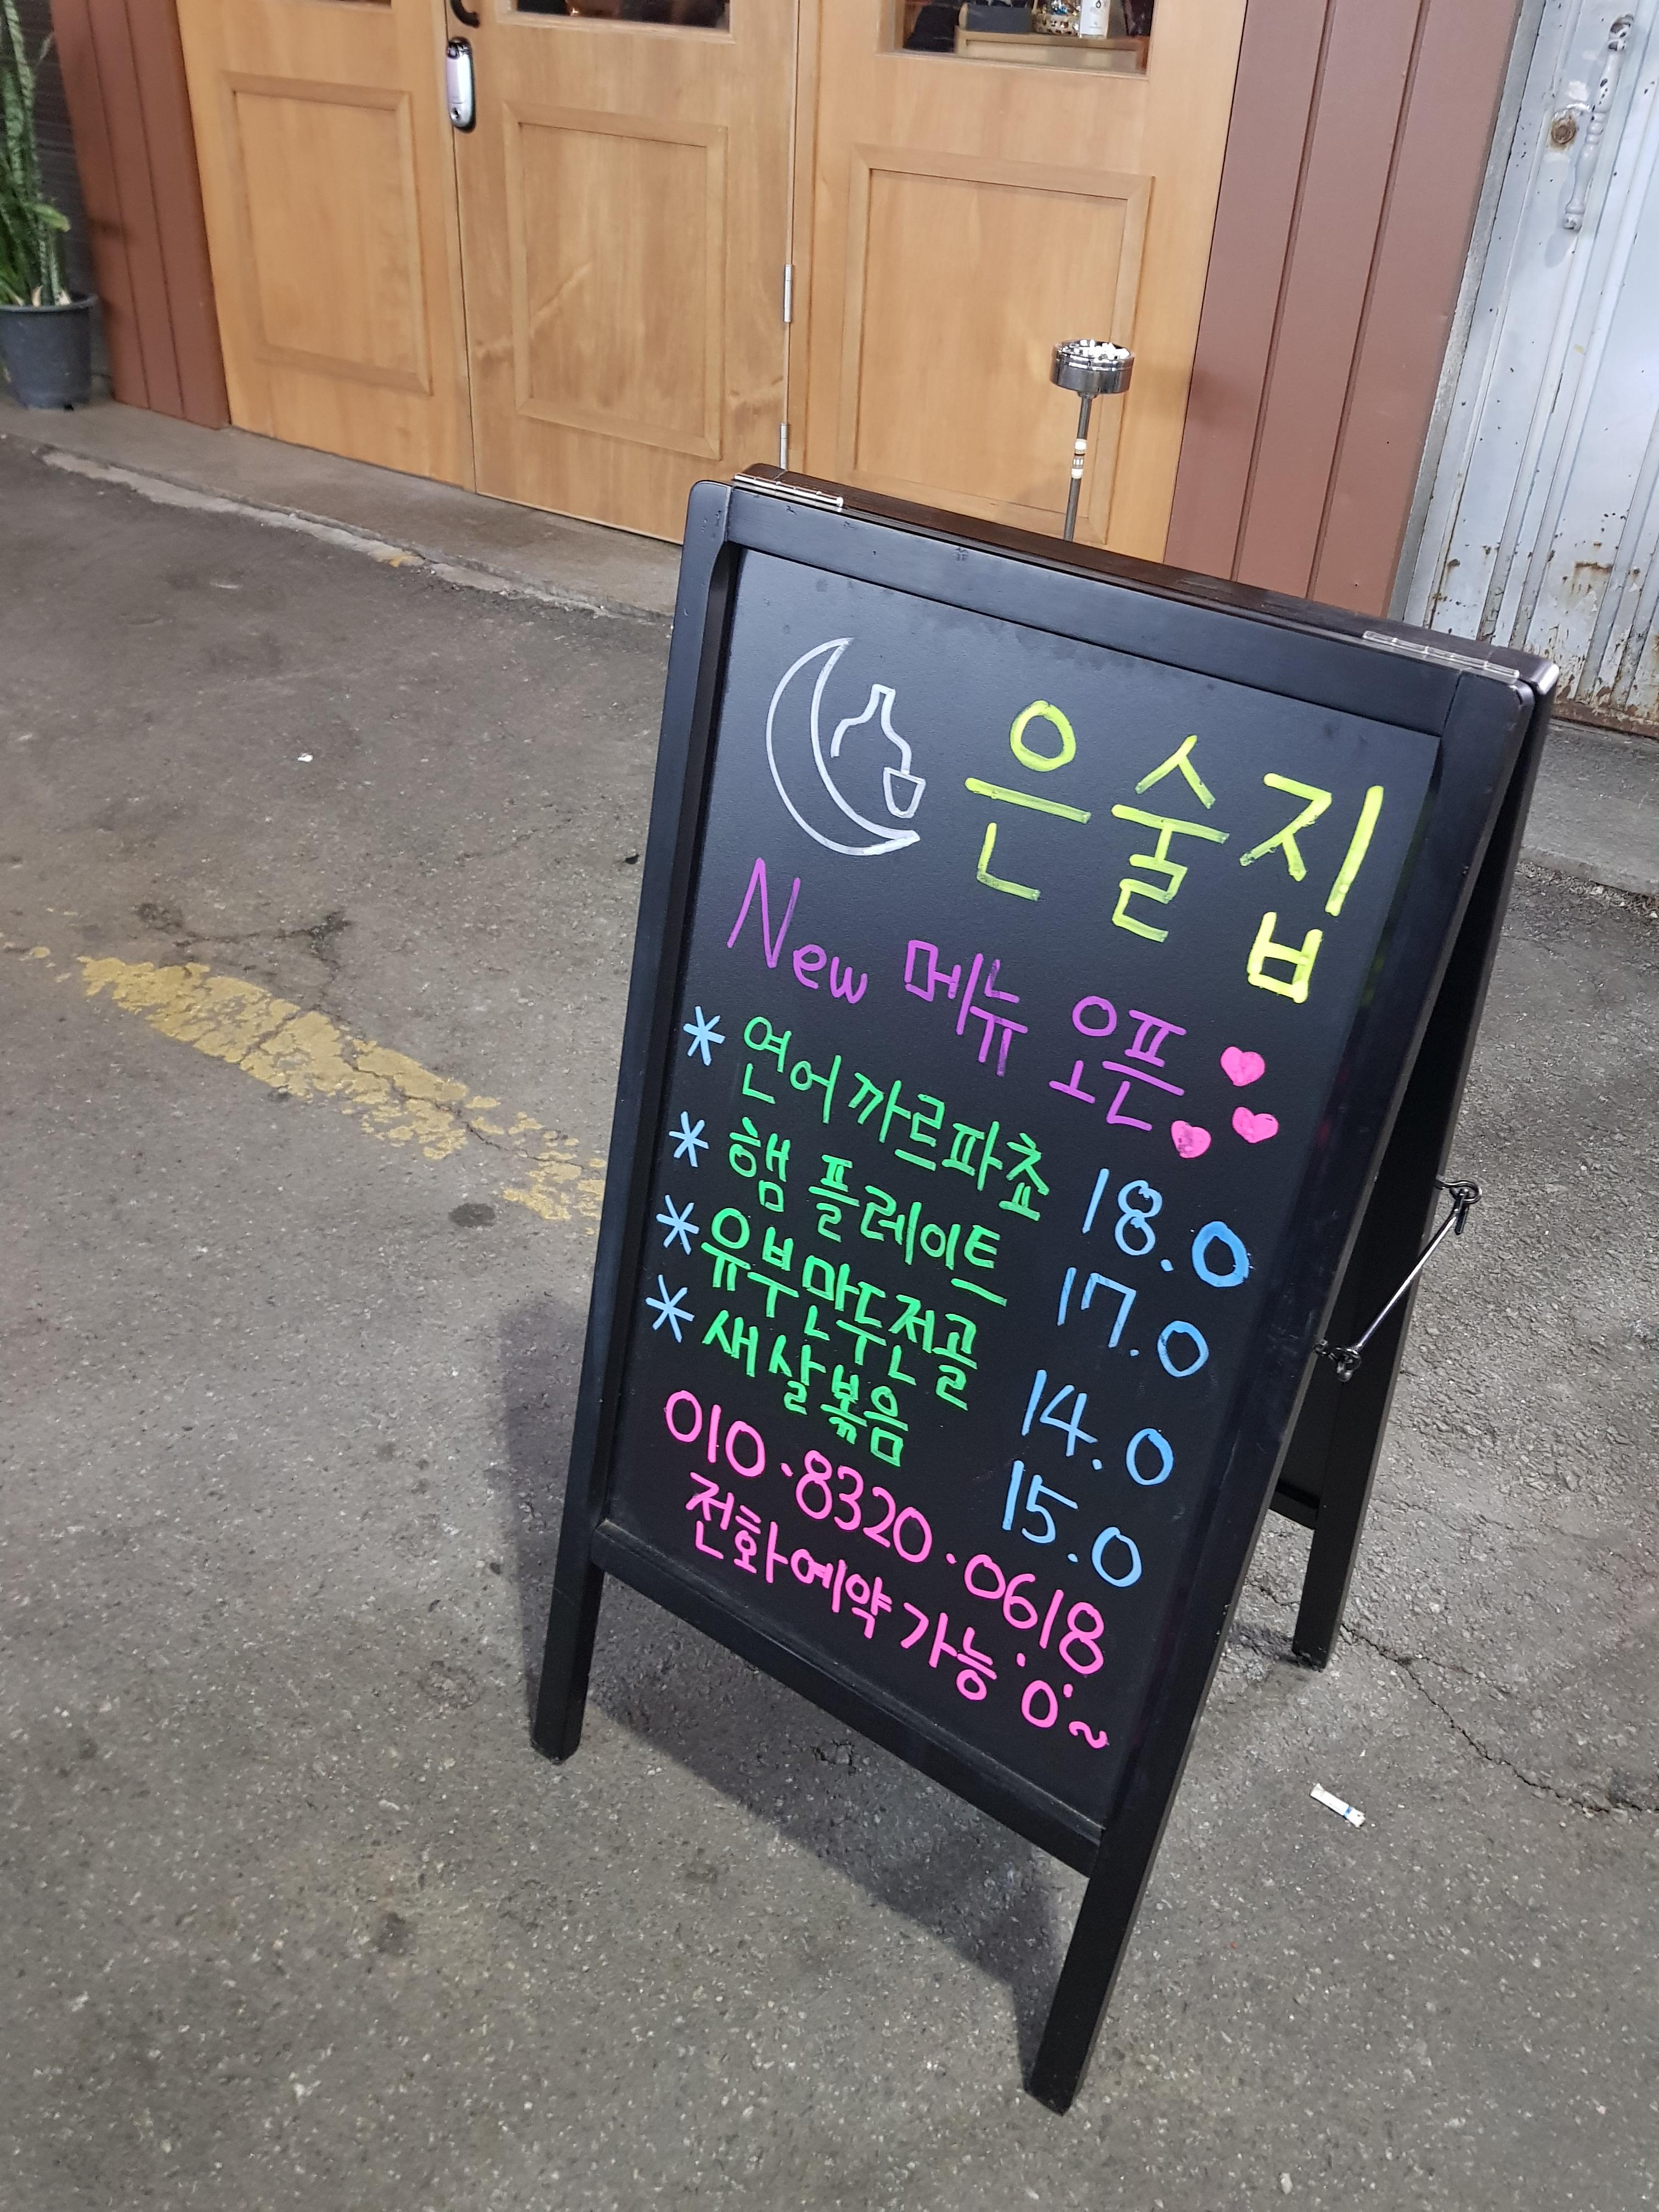 은술집
New 메뉴 오픈
* 연어 까르파쵸 18.0
* 햄 플레이트 17.0
* 유부만두전골 14.0
* 새살볶음 15.0
010.8320.0618
전화예약 가능·0·~